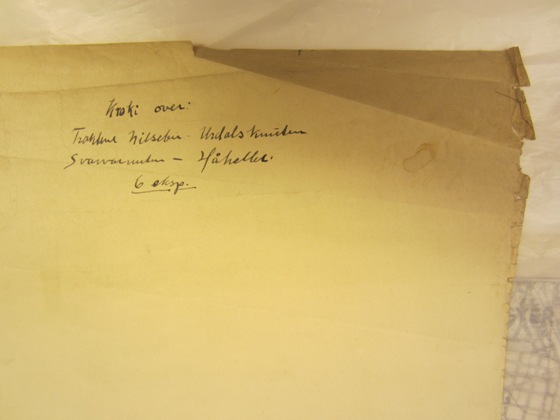 Kroki over:
Traktene Nilsebu - Urdalsknuten
Svarvarnuten - Håheller.
6 eksp.